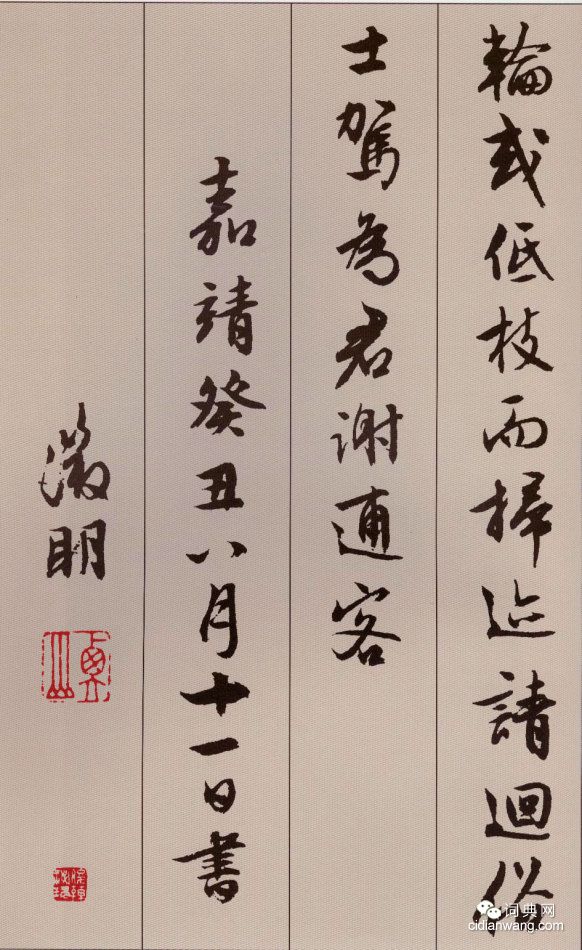 輪或低枝而掃迹請迴俗
士駕為君謝逋客
嘉靖癸丑八月十一日書
徵明
词典网
cidianwang.com